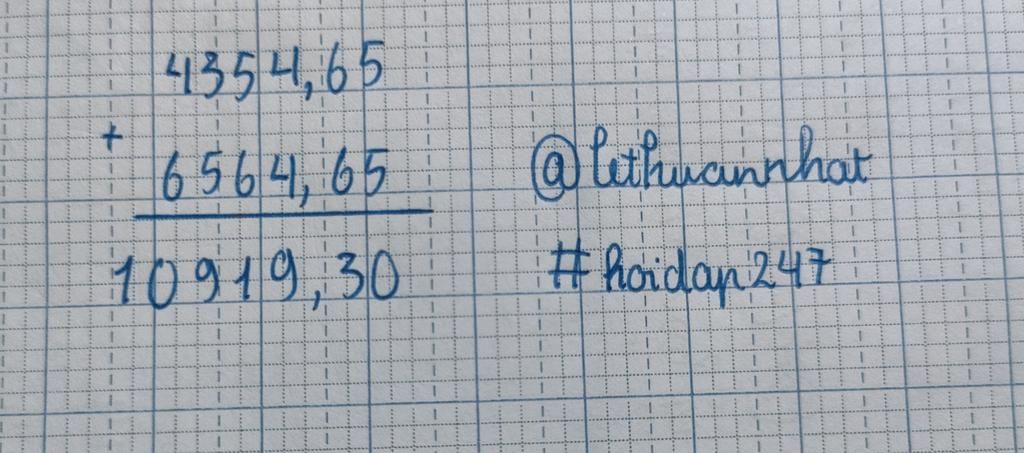 4354,65
+
6564,65
10919,30
@lethuannhat
#hoidap247